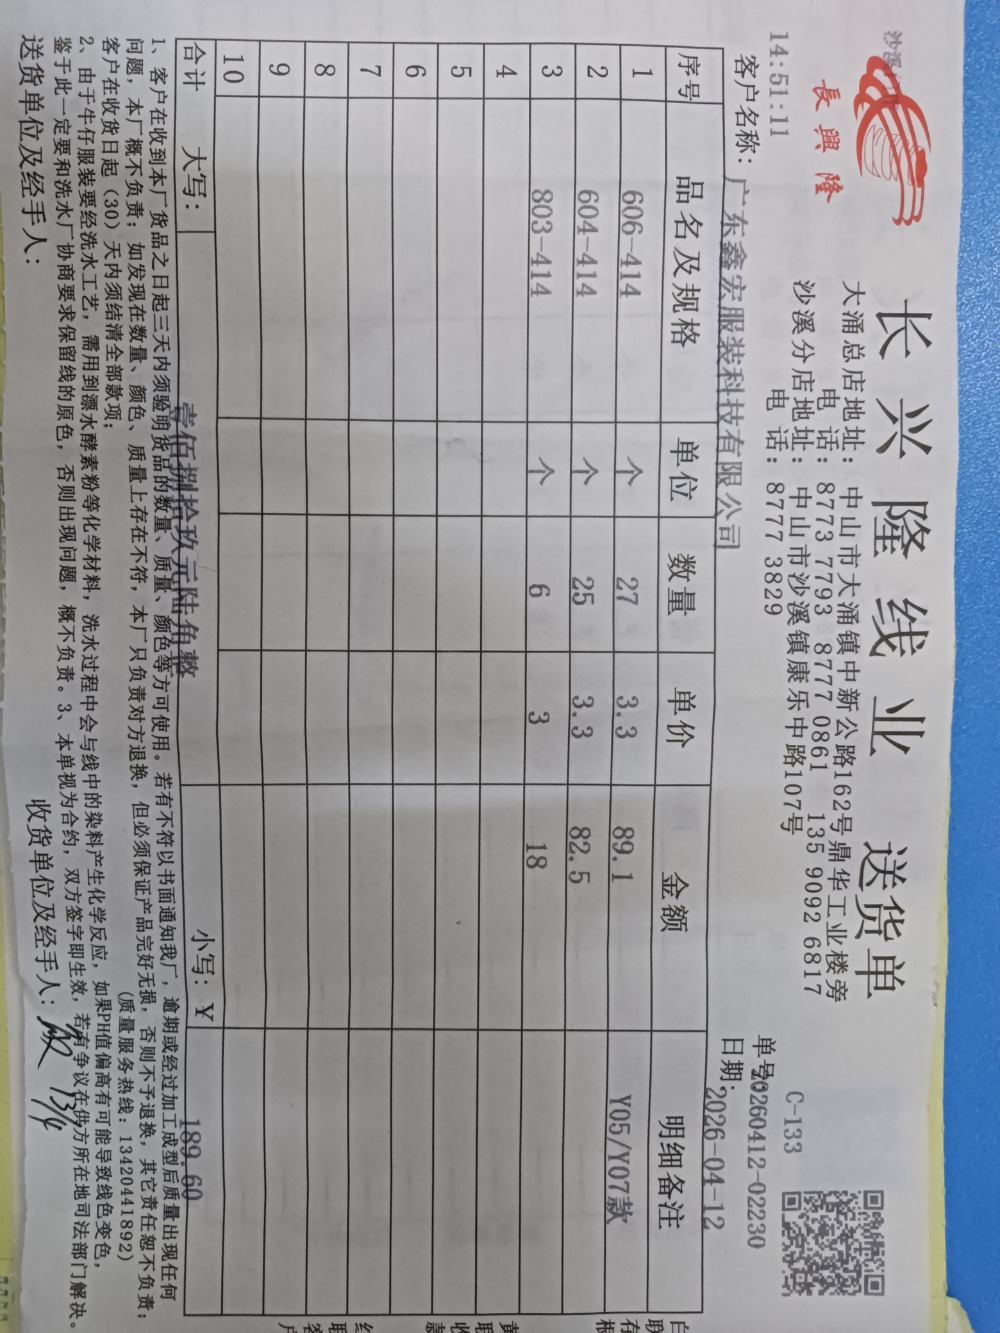 長興隆
长兴隆线业 送货单
C-133
大涌总店地址：中山市大涌镇中新公路162号鼎华工业楼旁
电 话：8773 7793 8777 0861 135 9092 6817
沙溪分店地址：中山市沙溪镇康乐中路107号
电 话：8777 3829
单号：20260412-02230
14:51:11
日期：2026-04-12
客户名称：广东鑫宏服装科技有限公司
序号 品名及规格 单位 数量 单价 金额 明细备注
1 606-414 个 27 3.3 89.1 Y05/Y07款
2 604-414 个 25 3.3 82.5
3 803-414 个 6 3 18
4
5
6
7
8
9
10
合计 大写：壹佰捌拾玖元陆角整 小写：￥ 189.60
1、客户在收到本厂货品之日起三天内须验明货品的数量、质量、颜色等方可使用。若有不符以书面通知我厂，逾期或经过加工成型后质量出现任何
问题，本厂概不负责；如发现在数量、颜色、质量上存在不符，本厂只负责对方退换，但必须保证产品完好无损，否则不予退换，其它责任恕不负责；
客户在收货日起（30）天内须结清全部款项； (质量服务热线：13420441892)
2、由于牛仔服装要经洗水工艺，需用到漂水酵素粉等化学材料，洗水过程中会与线中的染料产生化学反应，如果PH值偏高有可能导致线色变色，
鉴于此一定要和洗水厂协商要求保留线的原色，否则出现问题，概不负责。3、本单视为合约，双方签字即生效，若有争议在供方所在地司法部门解决。
送货单位及经手人： 收货单位及经手人： 13/4